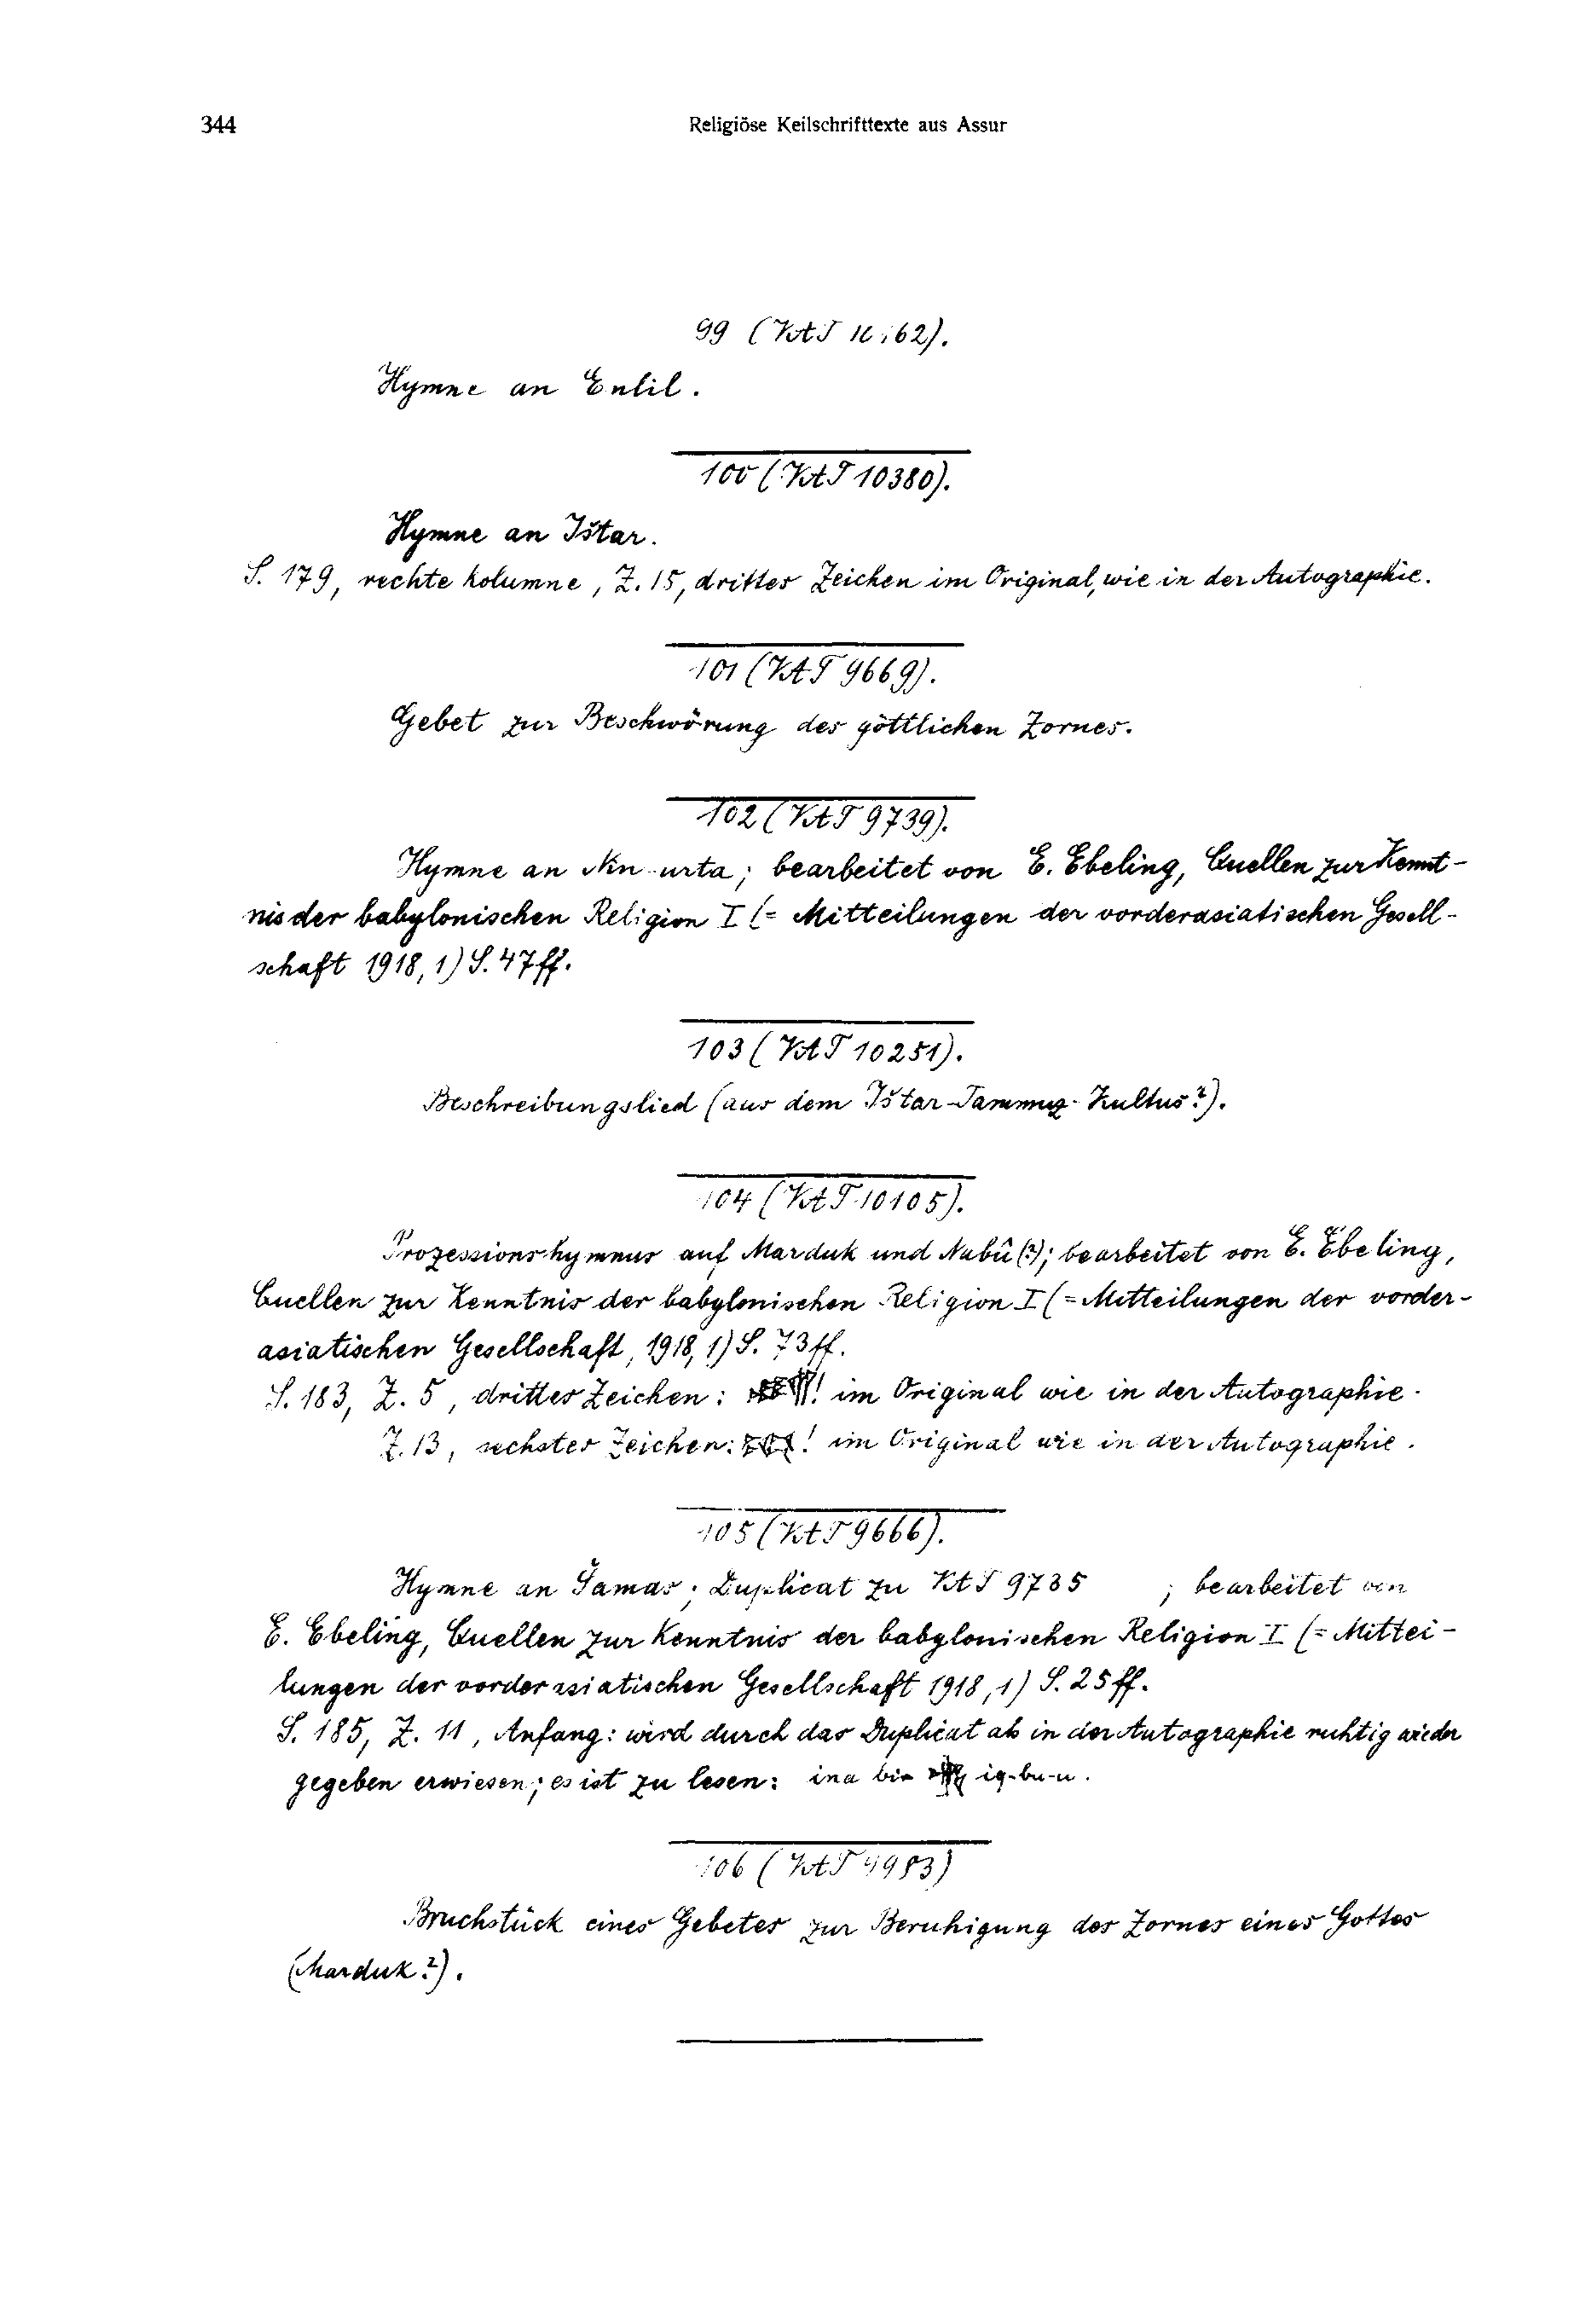 344
Religiöse Keilschrifttexte aus Assur
99 (VAT
Hymne an Enlil.
100 (VAT 10380).
Hymne an Ištar.
S. 179, rechte Kolumne, Z. 15, drittes Zeichen im Original, wie in der Autographie.
101 (VAT 9669).
Gebet zur Beschwörung des göttlichen Zornes.
102 (VAT 9739).
Hymne an Nin-urta; bearbeitet von E. Ebeling, Quellen zur Kennt-
nis der babylonischen Religion I (= Mitteilungen der vorderasiatischen Gesell-
schaft 1918, 1) S. 47 ff.
103 (VAT 10251).
Beschreibungslied (aus dem Ištar-Tammuz-Kultus?).
104 (VAT 10105).
Prozessionshymnus auf Marduk und Nabû (?); bearbeitet von E. Ebeling,
Quellen zur Kenntnis der babylonischen Religion I (= Mitteilungen der vorder-
asiatischen Gesellschaft, 1918, 1) S. 73 ff.
S. 183, Z. 5, drittes Zeichen: ! im Original wie in der Autographie.
Z. 13, sechstes Zeichen: ! im Original wie in der Autographie.
105 (VAT 9666).
Hymne an Šamaš; Duplicat zu VAT 9735 ; bearbeitet von
E. Ebeling, Quellen zur Kenntnis der babylonischen Religion I (= Mittei-
lungen der vorderasiatischen Gesellschaft 1918, 1) S. 25 ff.
S. 185, Z. 11, Anfang: wird durch das Duplicat als in der Autographie richtig wieder
gegeben erwiesen; es ist zu lesen: ina ig-bu-u.
106 (VAT
Bruchstück eines Gebetes zur Beruhigung des Zornes eines Gottes
(Marduk?).